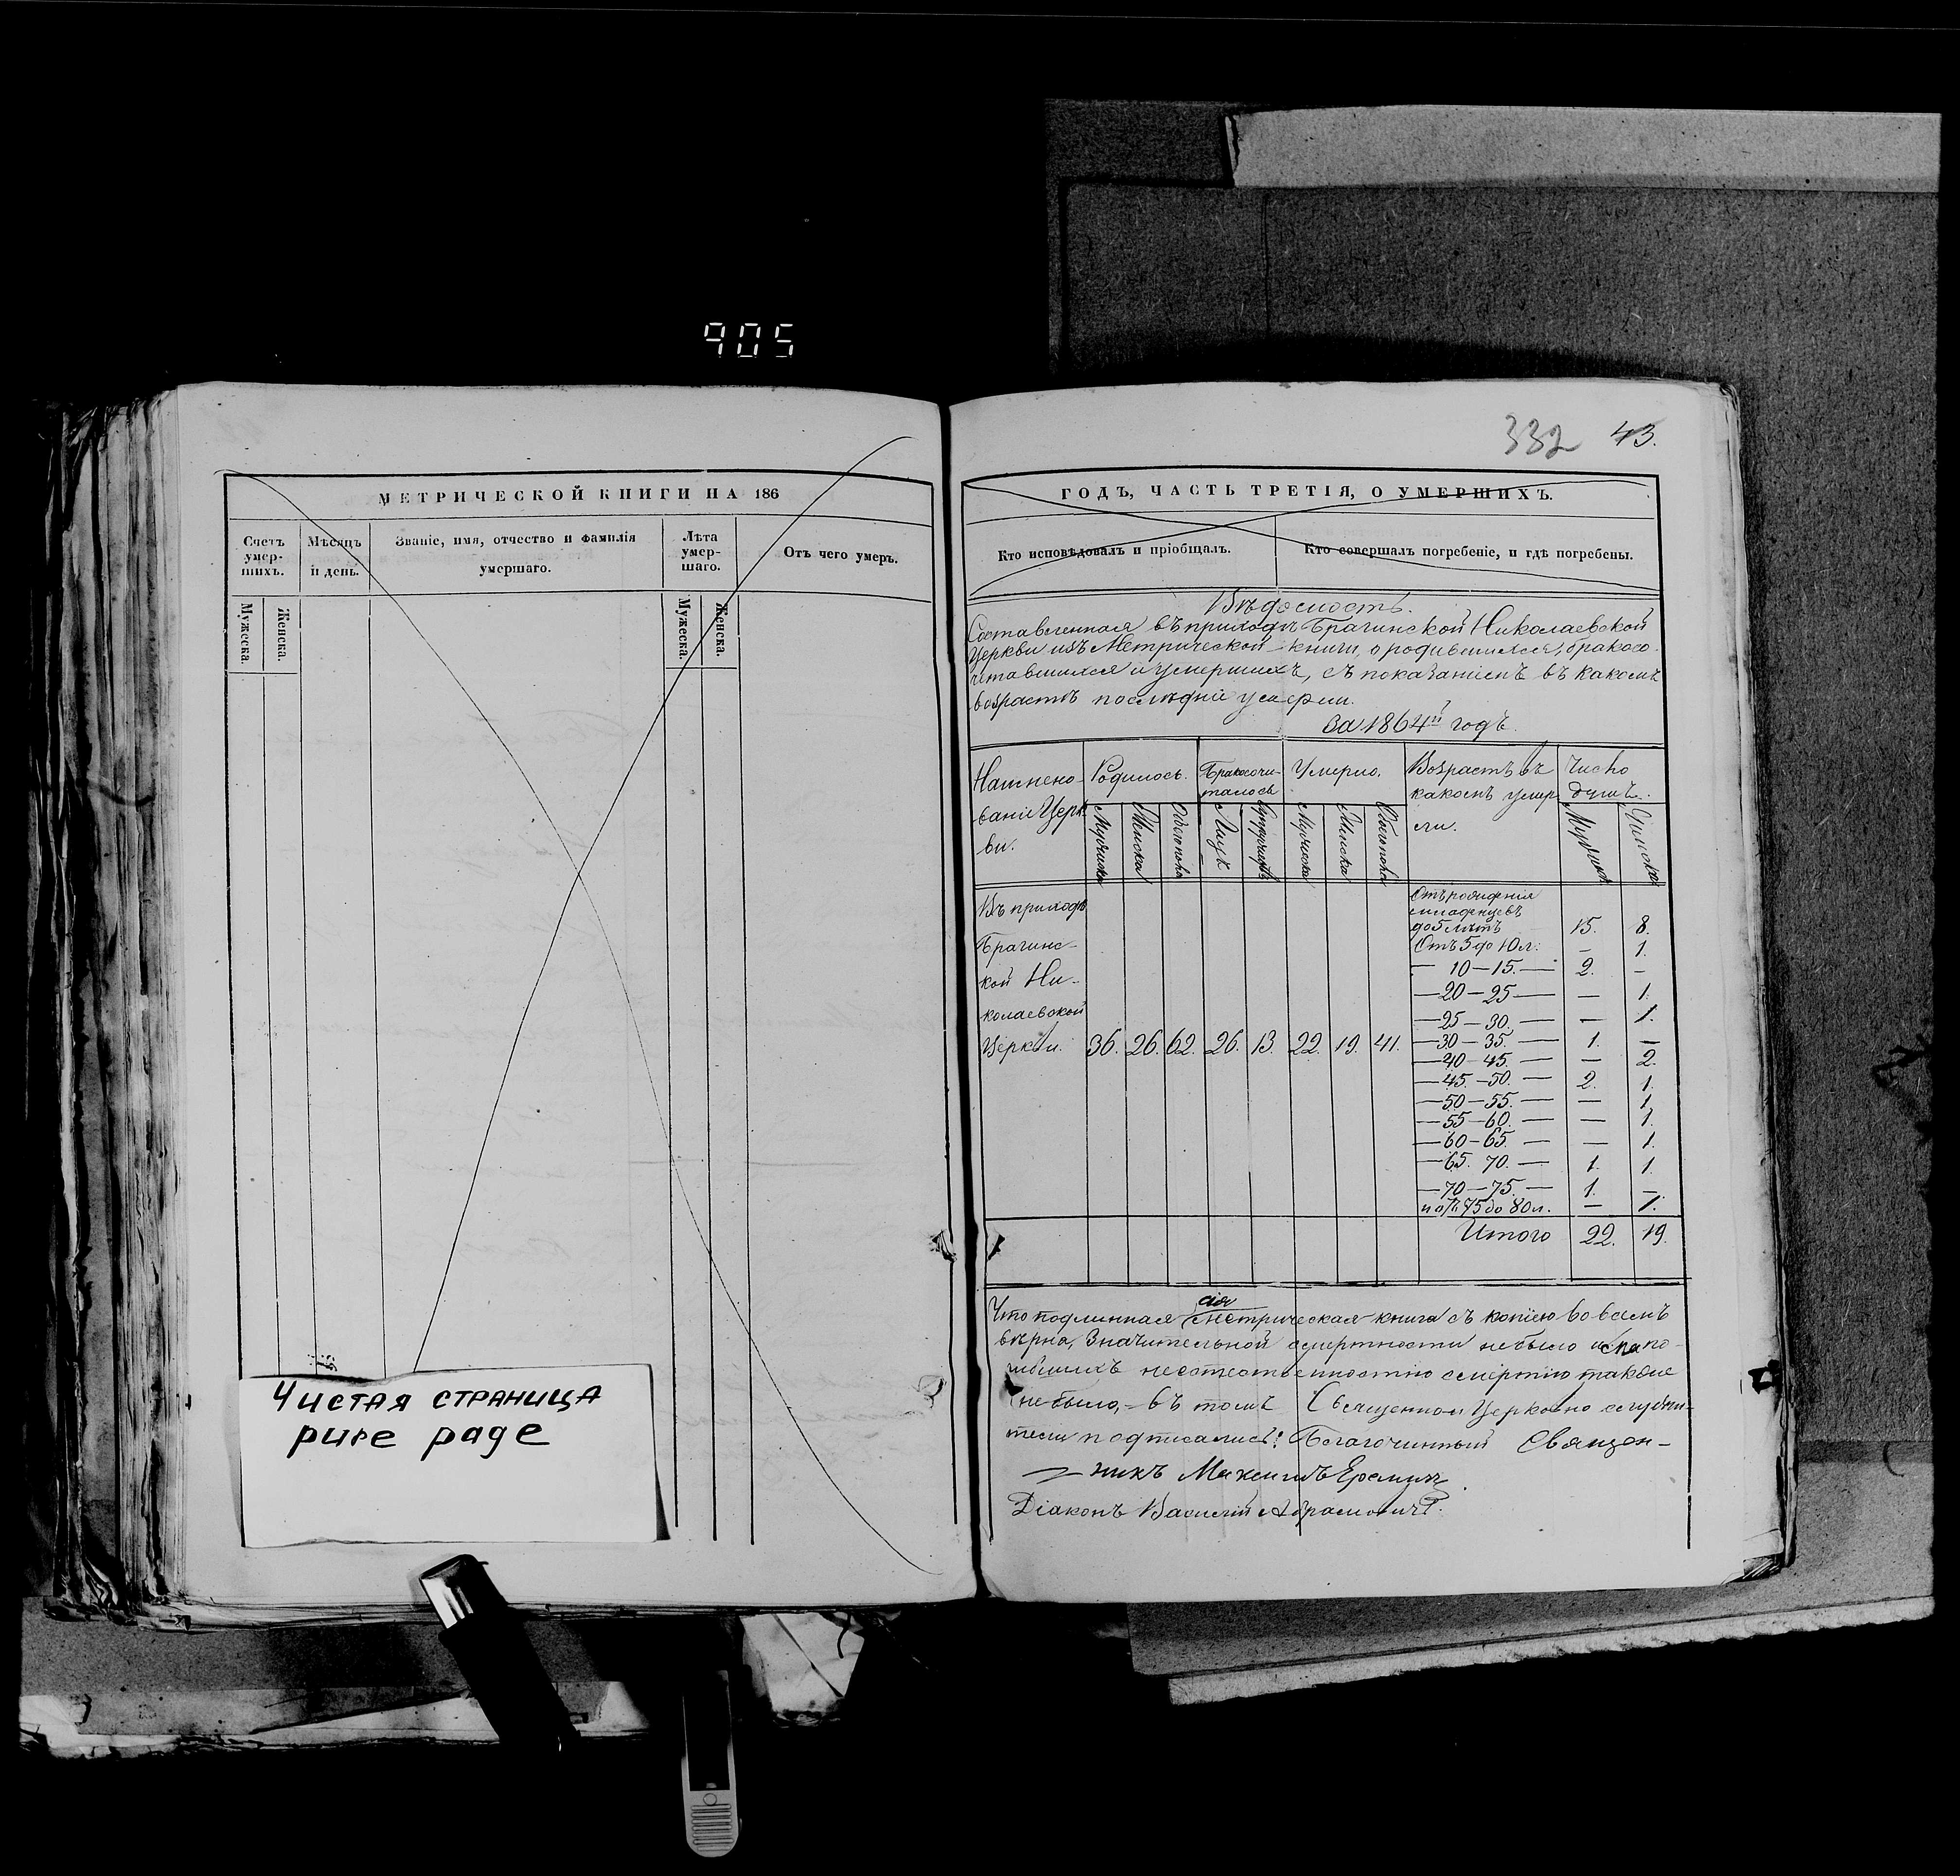 905
332 43.
МЕТРИЧЕСКОЙ КНИГИ НА 186
Счетъ умер-шихъ.
Мѣсяцъ и день.
Званіе, имя, отчество и фамилія умершаго.
Лѣта умер-шаго.
Отъ чего умеръ.
Мужеска.
Женска.
Мужеска.
Женска.
Чистая страница
pure page
ГОДЪ, ЧАСТЬ ТРЕТІЯ, О УМЕРШИХЪ.
Кто исповѣдовалъ и пріобщалъ.
Кто совершалъ погребеніе, и гдѣ погребены.
Вѣдомость.
Составленная въ приходѣ Брагинской Николаевской
Церкви изъ Метрической книги, о родившихся, бракосо-
четавшихся и умершихъ, съ показаніемъ въ какомъ
возрастѣ послѣдніе умерли.
За 1864й годъ.
Наимено-
ваніе Церк
ви.
Родилось.
Бракосочи-
талось
Умерло.
Возрастъ въ
какомъ умер
ли.
Число
душъ.
Мужеска
Женска
Обоего пола
Лицъ
Супружествъ
Мужеска
Женска
Обоего пола
Мужеска
Женска
Въ приходѣ
Брагинс-
кой Ни-
колаевской
Церкви. 36. 26. 62. 26. 13. 22. 19. 41.
Отъ рожденія
младенцевъ
до 5 лѣтъ 15. 8.
Отъ 5 до 10 л: — 1.
— 10—15. — 2. —
—20—25— — 1.
—25—30. — — 1.
—30—35. — 1. —
—40—45. — — 2.
—45.—50. — 2. 1.
—50—55. — — 1.
—55—60. — — 1.
—60—65. — — 1.
—65. 70. — 1. 1.
—70—75. — 1. —.
и отъ 75 до 80 л. — 1.
Итого 22. 19.
сія
Что подлинная Метрическая книга съ копіею во всемъ
вѣрна, Значительной смертности небыло и ско по-
гибшихъ неестественностію смертію такъже
небыло, – въ томъ Священно и Церковно служи-
тели подписались: Благочинный Священ-
никъ Максимъ Еремичъ
Діаконъ Василій Абрамовичъ.